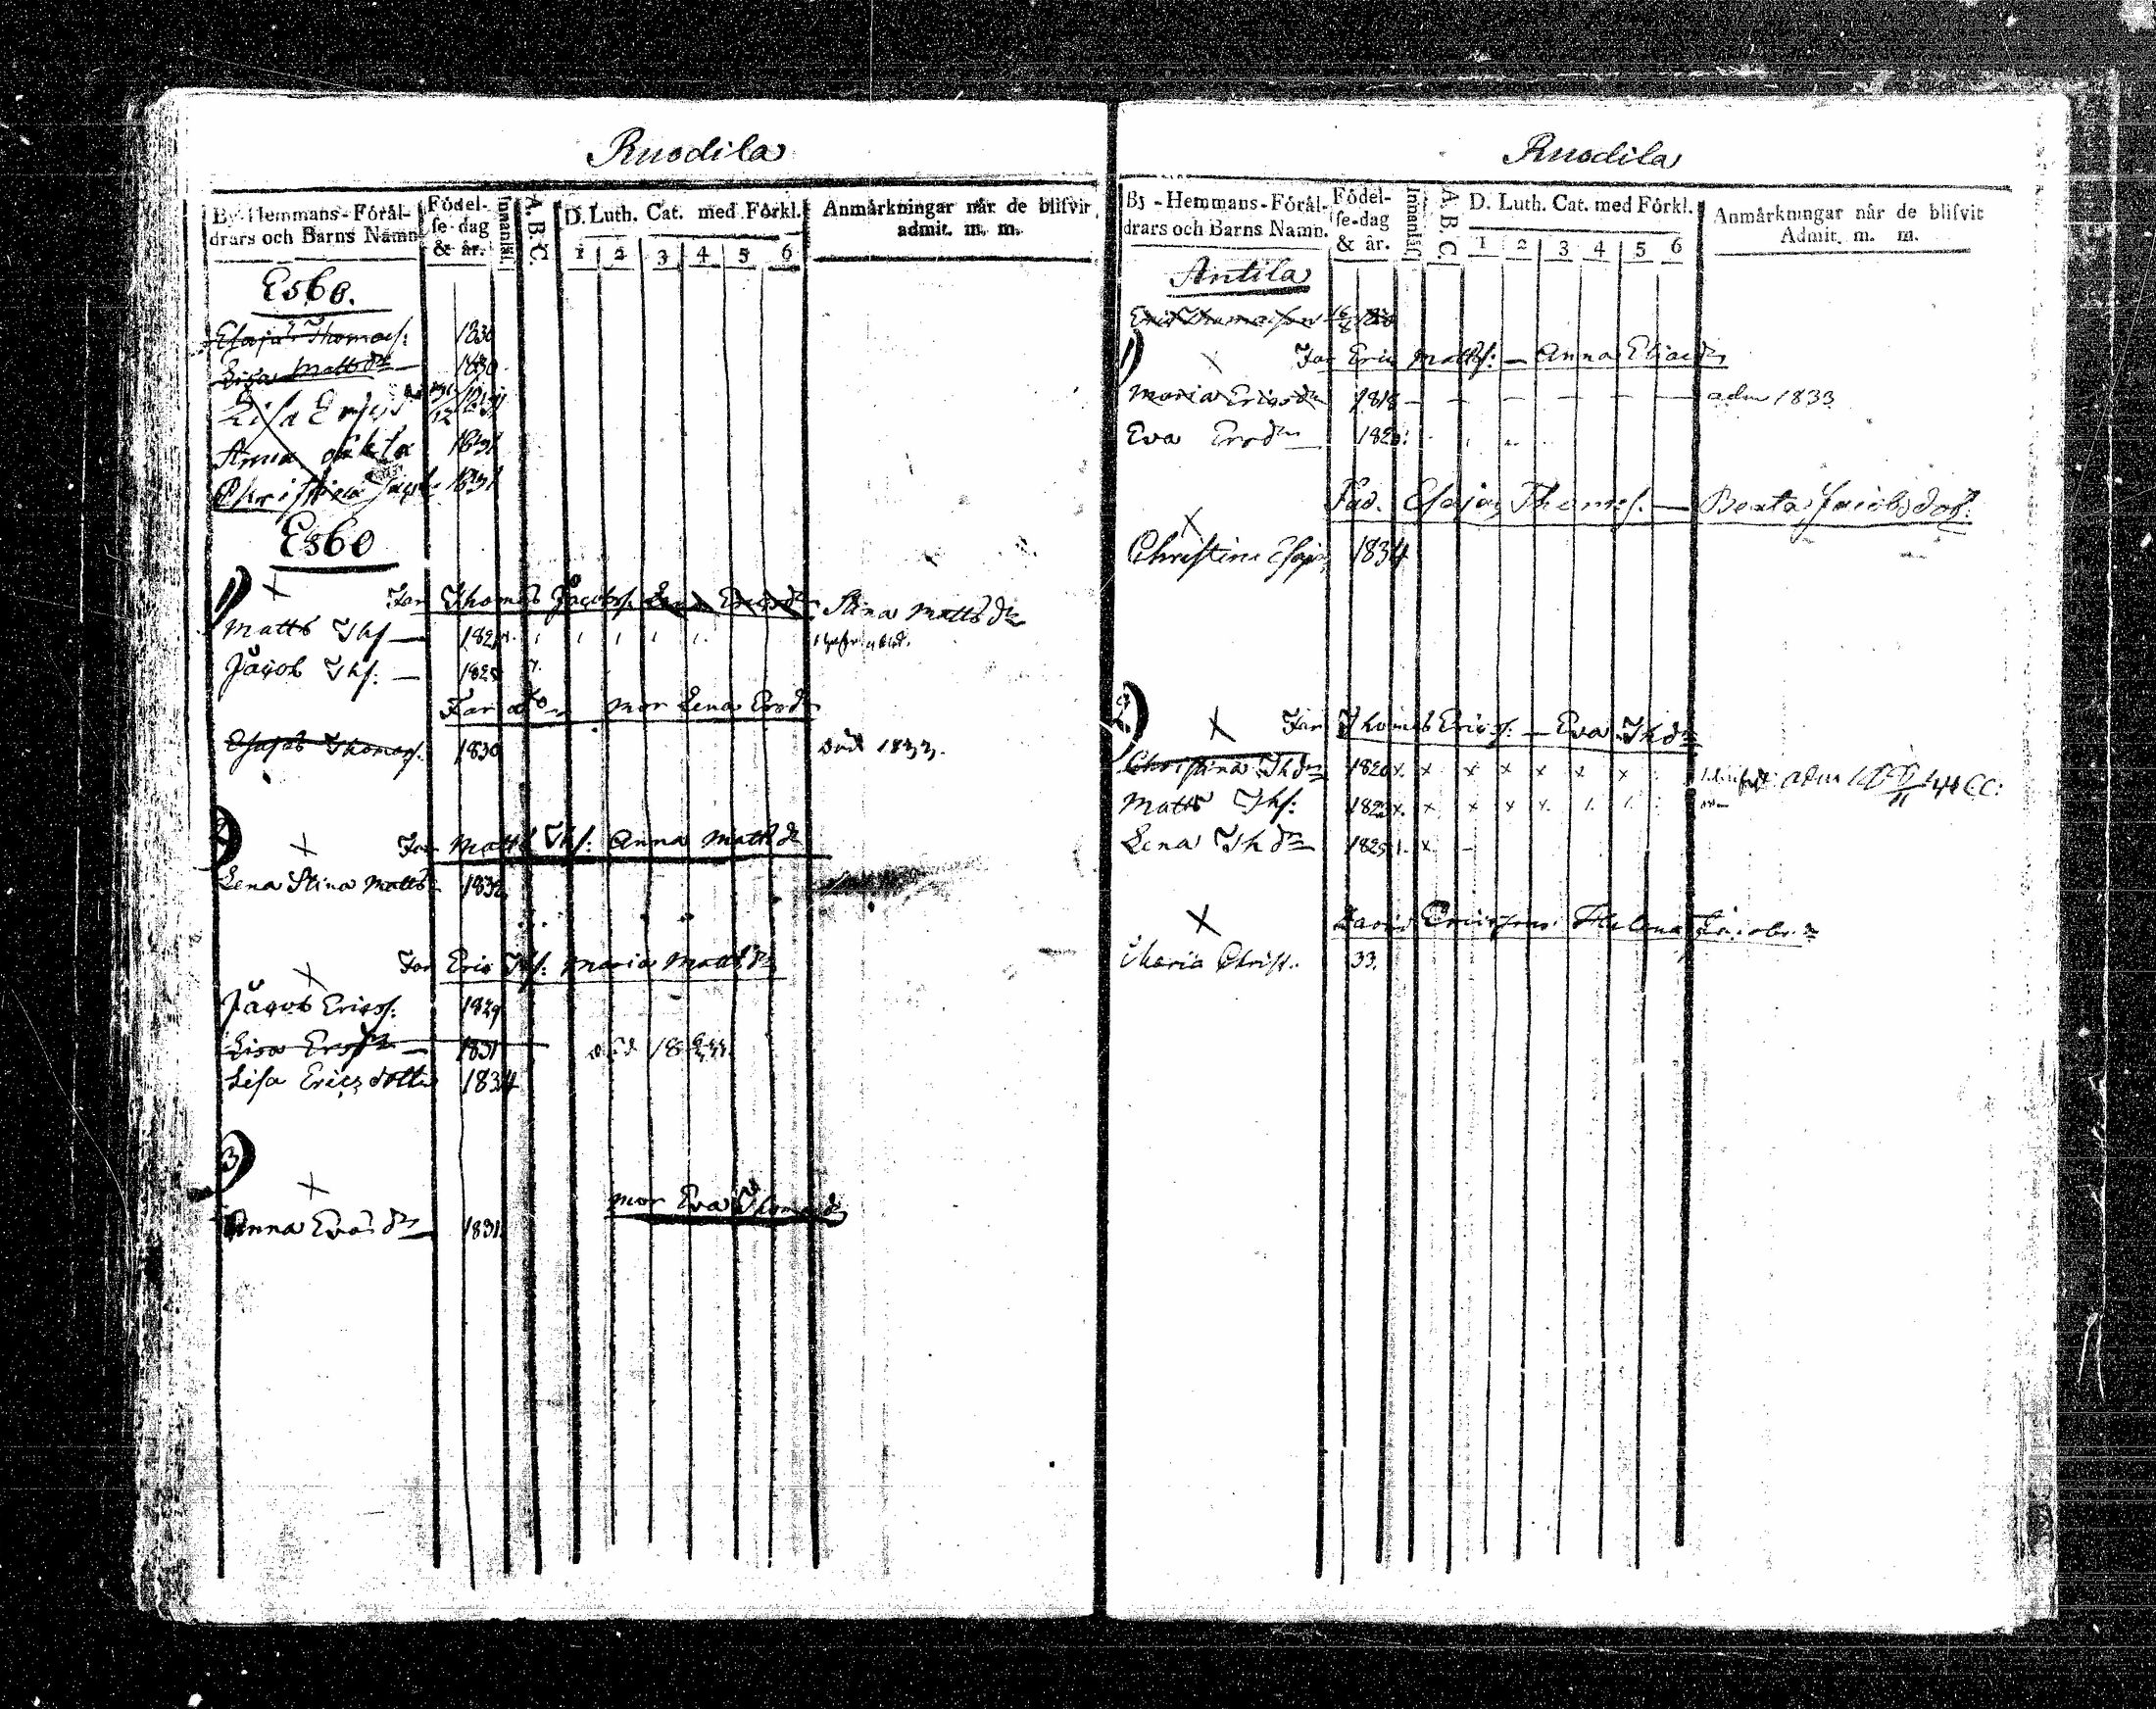 Ruodila
By-Hemmans-Förål-drars och Barns Namn
Födel-se-dag & år.
Innanläsn
A. B. C.
D. Luth. Cat. med Förkl.
1 2 3 4 5 6
Anmärkningar når de blifvit admit. m. m.
Esbo.
Esajas Thomass: 1830
Lisa Mattsdr 1830
Lisa
Anna 1831
Christina 1831
Esbo
1)
Far Thomas Jacobss. Lena Ericsdr Stina Mattsdr
Matts Ths 1821
Jacob Ths: 1825
Far dto mor Lena Ersdr
Esajas Thomass. 1830 död 1833.
2)
Far Matts Ths: Anna Mattsdr
Lena Stina Matts 1832
Far Eric Ths: Maria Mattsdr
Jacob Ericss: 1829
Lisa Ersdr 1831 död 1833
Lisa Ericsdotter 1834
3)
mor Eva Thomasdr
Anna Evasdr 1831
Ruodila
By-Hemmans-Förål-drars och Barns Namn.
Födel-se-dag & år.
Innanläsn
A. B. C
D. Luth. Cat. med Förkl.
1 2 3 4 5 6
Anmärkningar når de blifvit Admit. m. m.
Antila
Eric Thomasson
1)
Far Eric Matts: — Anna Eliaedr
Maria Ericsdr 1818 — — — — — — adm 1833
Eva Ersdr 1820
Fad. Esajas Thoms. — Beata Jacobsdot:
Christina Esajs 1834
2)
Far Thomas Ericss: — Eva Thdr
Christina Thdr 1820 x. x x x x x x adm
Matts Ths: 1823 x. x x x x
Lena Thdr 1825
David Ericsson Helena Jacobs
Maria Christ. 33.